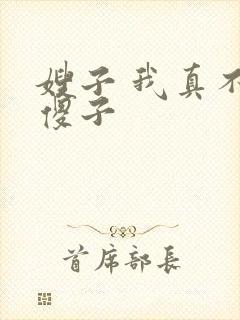 嫂子我真不
傻子
首席部长